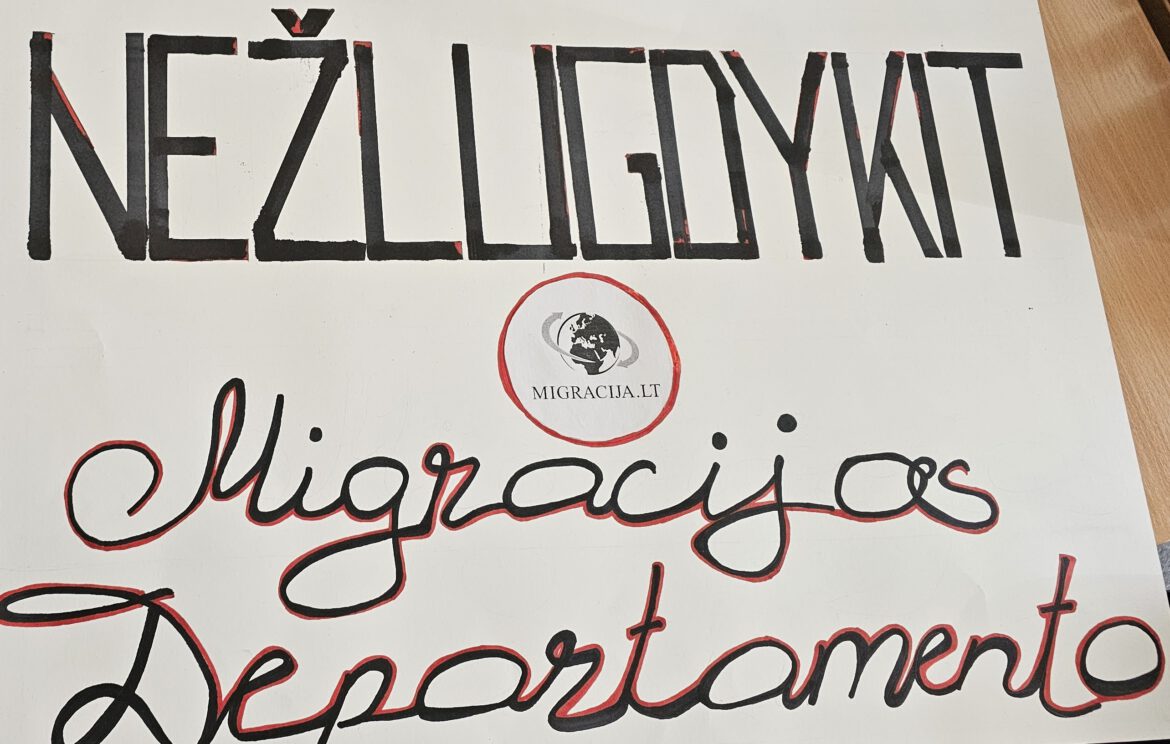 NEŽLUGDYKIT
MIGRACIJA.LT
Migracijos
Departamento